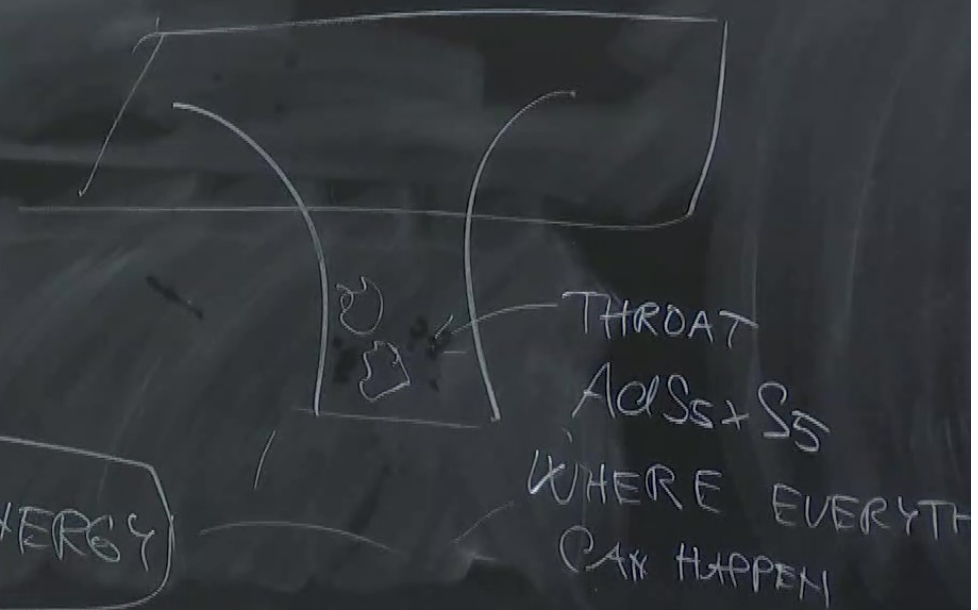 THROAT
AdS5 × S5
WHERE EVERYTH
CAN HAPPEN
NERGY